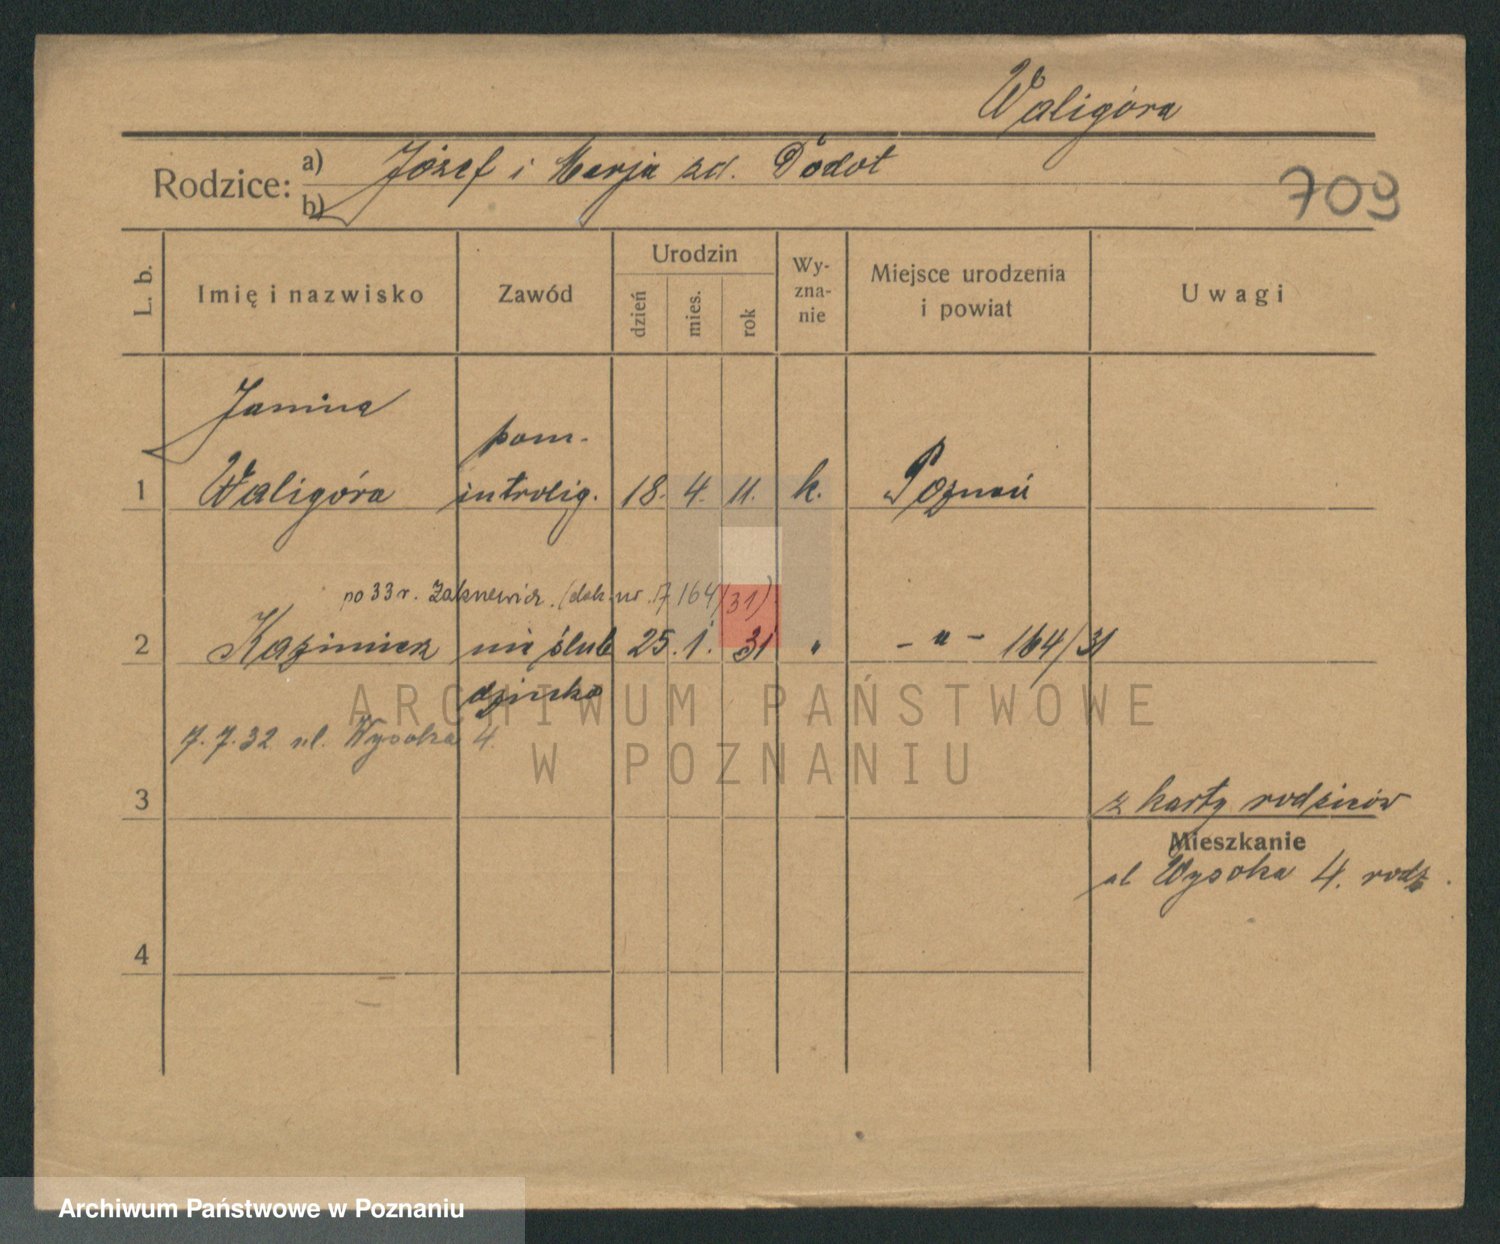 Waligóra
Rodzice: a) Józef i Marja zd. Podot
b)
709
L. b. Imię i nazwisko Zawód Urodzin dzień mies. rok Wy-zna-nie Miejsce urodzenia i powiat Uwagi
Janina pom.
1 Waligóra introlig. 18. 4. 11. k. Poznań
po 33 r. (dok. nr. 17 164/31)
2 Kazimierz nieślub 25. 1. 31 " - " - 164/31
dziecko
7. 7. 32 ul. Wysoka 4.
3 z karty rodziców
Mieszkanie
ul Wysoka 4. rodz.
4
ARCHIWUM PAŃSTWOWE
W POZNANIU
Archiwum Państwowe w Poznaniu